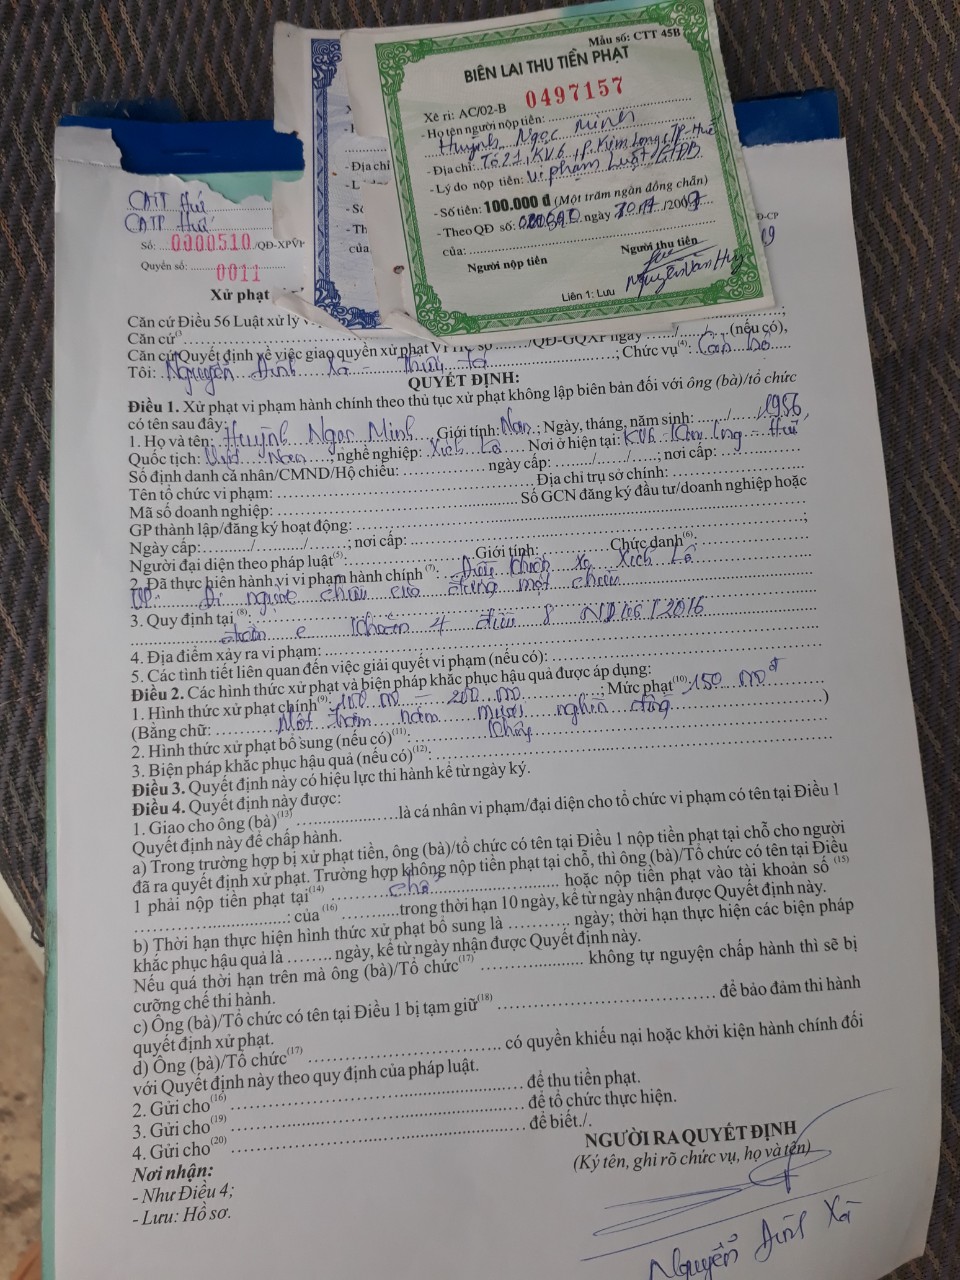 Mẫu số: CTT 45B
BIÊN LAI THU TIỀN PHẠT
Xê ri: AC/02-B 0497157
- Họ tên người nộp tiền:
Huỳnh Ngọc Minh
- Địa chỉ: Tổ 21, KV6, P. Kim Long, TP Huế
- Lý do nộp tiền: Vi phạm Luật GTĐB
- Số tiền: 100.000 đ (Một trăm ngàn đồng chẵn)
- Theo QĐ số: ngày /200
của:
Người nộp tiền Người thu tiền
Nguyễn Văn Huy
Liên 1: Lưu
- Địa chỉ
- L
- Số
- Th
của
CATT Huế
CATP Huế
Số: 0000510/QĐ-XPVP
Quyển số: 0011
Đ-CP
Xử phạt
Căn cứ Điều 56 Luật xử lý
Căn cứ
Căn cứ Quyết định về việc giao quyền xử phạt số /QĐ-GQXP ngày / / (nếu có),
Tôi: Nguyễn Đình Xã - ; Chức vụ(4): Cán bộ
QUYẾT ĐỊNH:
Điều 1. Xử phạt vi phạm hành chính theo thủ tục xử phạt không lập biên bản đối với ông (bà)/tổ chức
có tên sau đây:
1. Họ và tên: Huỳnh Ngọc Minh Giới tính: Nam; Ngày, tháng, năm sinh: / /1956
Quốc tịch: Việt Nam; nghề nghiệp: Xích Lô Nơi ở hiện tại: KV6 - Kim Long - Huế
Số định danh cá nhân/CMND/Hộ chiếu: ngày cấp: / / ; nơi cấp:
Tên tổ chức vi phạm: Địa chỉ trụ sở chính:
Mã số doanh nghiệp: Số GCN đăng ký đầu tư/doanh nghiệp hoặc
GP thành lập/đăng ký hoạt động:
Ngày cấp: / / ; nơi cấp: ;
Người đại diện theo pháp luật(5): Giới tính: Chức danh(6):
2. Đã thực hiện hành vi vi phạm hành chính (7): Điều khiển xe Xích Lô
VP: Đi ngược chiều của đường một chiều
3. Quy định tại (8):
điểm e khoản 4 điều 8 NĐ/46/2016
4. Địa điểm xảy ra vi phạm:
5. Các tình tiết liên quan đến việc giải quyết vi phạm (nếu có):
Điều 2. Các hình thức xử phạt và biện pháp khắc phục hậu quả được áp dụng:
1. Hình thức xử phạt chính(9): 100 000 - 200 000 ; Mức phạt(10): 150 000đ
(Bằng chữ: Một trăm năm mươi nghìn đồng )
2. Hình thức xử phạt bổ sung (nếu có)(11): Không
3. Biện pháp khắc phục hậu quả (nếu có)(12):
Điều 3. Quyết định này có hiệu lực thi hành kể từ ngày ký.
Điều 4. Quyết định này được:
1. Giao cho ông (bà)(13) là cá nhân vi phạm/đại diện cho tổ chức vi phạm có tên tại Điều 1
Quyết định này để chấp hành.
a) Trong trường hợp bị xử phạt tiền, ông (bà)/tổ chức có tên tại Điều 1 nộp tiền phạt tại chỗ cho người
đã ra quyết định xử phạt. Trường hợp không nộp tiền phạt tại chỗ, thì ông (bà)/Tổ chức có tên tại Điều
1 phải nộp tiền phạt tại(14) chỗ hoặc nộp tiền phạt vào tài khoản số (15)
: của (16) trong thời hạn 10 ngày, kể từ ngày nhận được Quyết định này.
b) Thời hạn thực hiện hình thức xử phạt bổ sung là ngày; thời hạn thực hiện các biện pháp
khắc phục hậu quả là ngày, kể từ ngày nhận được Quyết định này.
Nếu quá thời hạn trên mà ông (bà)/Tổ chức(17) không tự nguyện chấp hành thì sẽ bị
cưỡng chế thi hành.
c) Ông (bà)/Tổ chức có tên tại Điều 1 bị tạm giữ(18) để bảo đảm thi hành
quyết định xử phạt.
d) Ông (bà)/Tổ chức(17) có quyền khiếu nại hoặc khởi kiện hành chính đối
với Quyết định này theo quy định của pháp luật.
2. Gửi cho(16) để thu tiền phạt.
3. Gửi cho(19) để tổ chức thực hiện.
4. Gửi cho(20) để biết./.
NGƯỜI RA QUYẾT ĐỊNH
(Ký tên, ghi rõ chức vụ, họ và tên)
Nơi nhận:
- Như Điều 4;
- Lưu: Hồ sơ.
Nguyễn Đình Xã